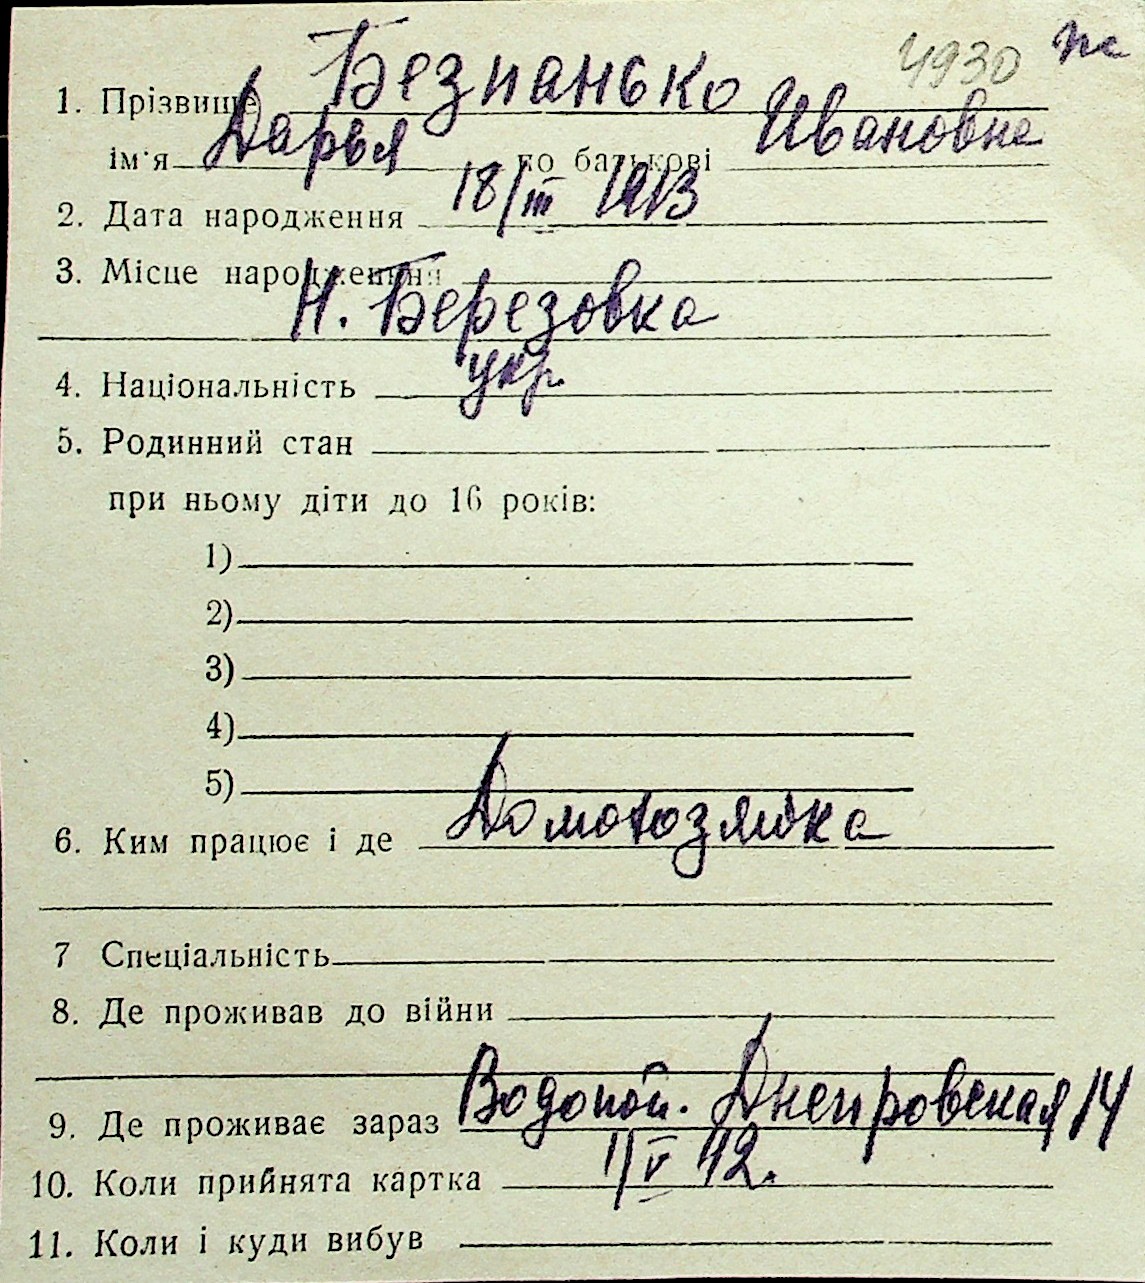 4930 пс
1. Прізвище Безпанько
ім'я Дарья по батькові Ивановна
2. Дата народження 18/III 1913
3. Місце народження
Н. Березовка
4. Національність укр.
5. Родинний стан
при ньому діти до 16 років:
1)
2)
3)
4)
5)
6. Ким працює і де Домохозяйка
7 Спеціальність
8. Де проживав до війни
9. Де проживає зараз Водопой. Днепровская 14
10. Коли прийнята картка 1/V 42.
11. Коли і куди вибув